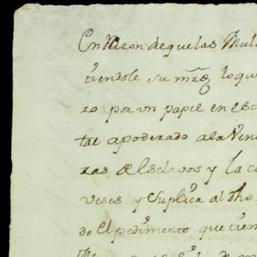 En Razon de que las Mul
tiendole su mrd. lo que
zo por un papel en est
tar apoderado a la Ven
ras de Esclavos y la c
veses y suplica al Ths
do el pedimento que tien